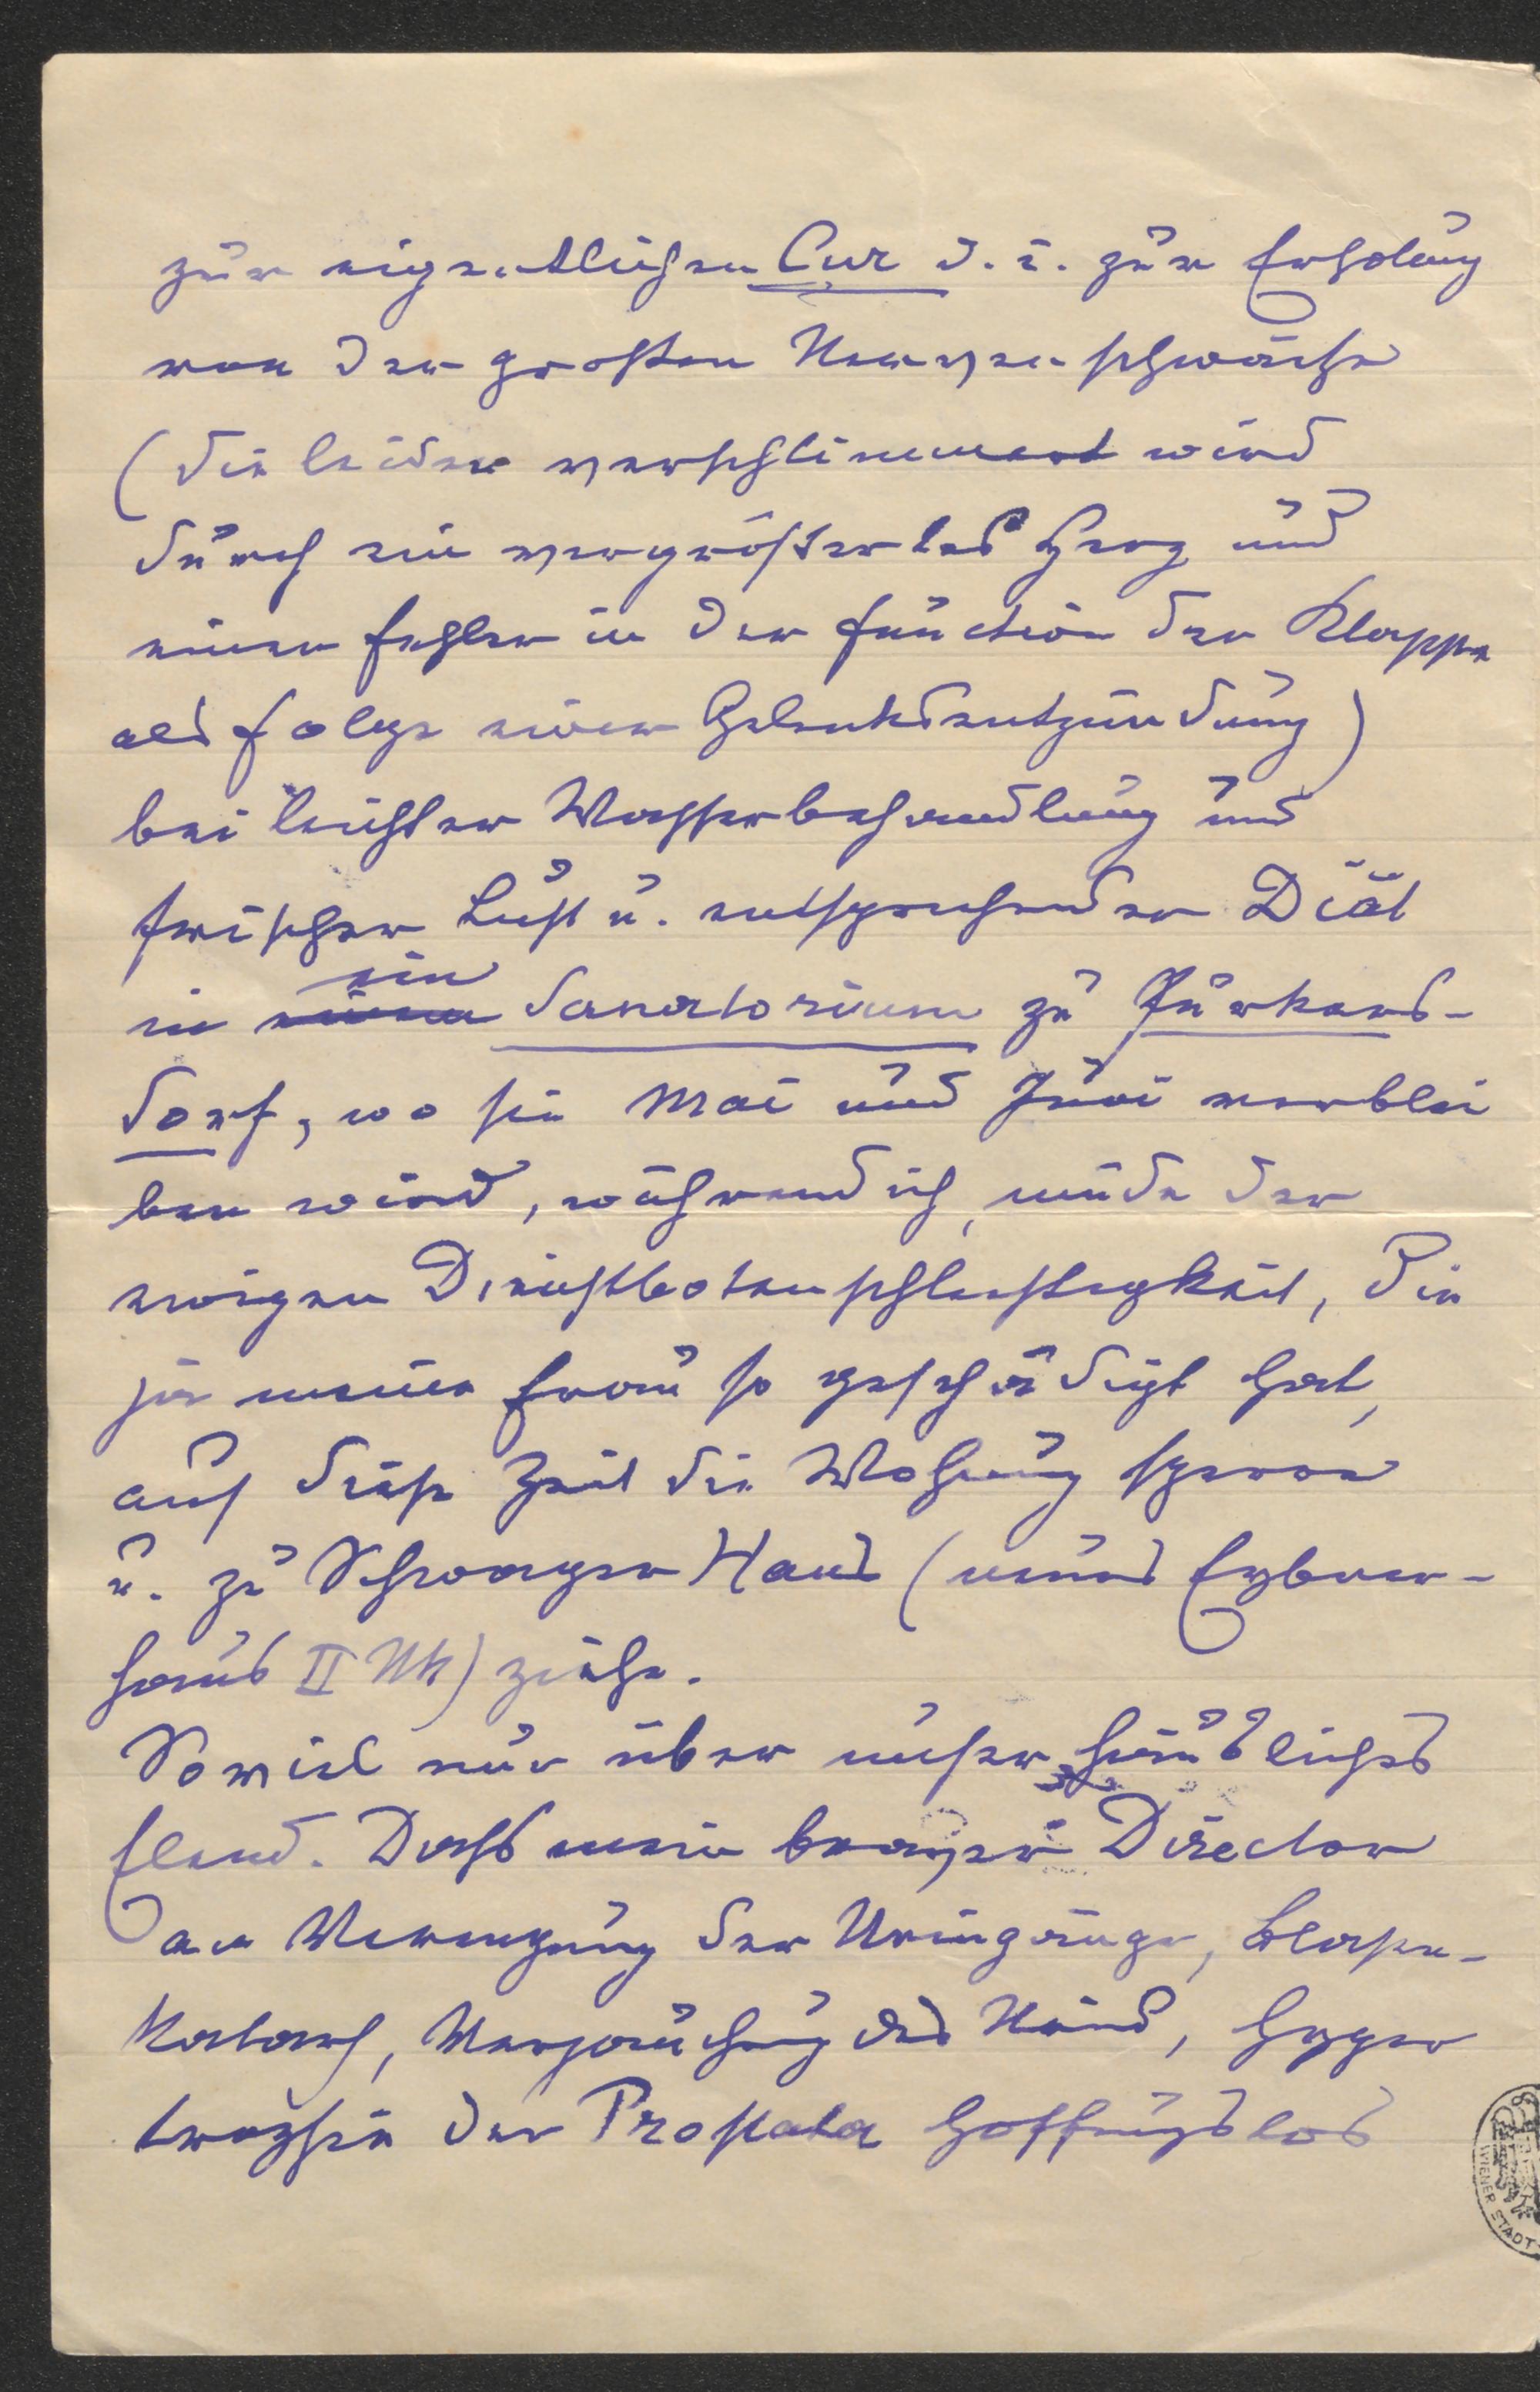 zur eigentlichen Cur d. i. zur Erholung
von der großen Nervenschwäche
(die leider verschlimmert wird
durch ein vergrößertes Herz und
einen Fehler in der Function der Klappe
als Folge einer Gelenksentzündung)
bei leichter Wasserbehandlung und
frischer Luft u. entsprechender Diät
in einem ein Sanatorium zu Purkers-
dorf, wo sie Mai und Juni verblei
ben wird, während ich, müde der
ewigen Dienstbotenschlechtigkeit, die
ja meine Frau so geschädigt hat,
auf diese Zeit die Wohnung sperre
u. zu Schwager Hans (neues
haus II Stk) ziehe.
Soviel nur über unser häusliches
Elend. Dass mein braver Director
an Verengung der Uringänge, Blasen-
Katarrh, Verjauchung des Urins, Hyper
trophie der Prostata hoffnungslos
WIENER STADT